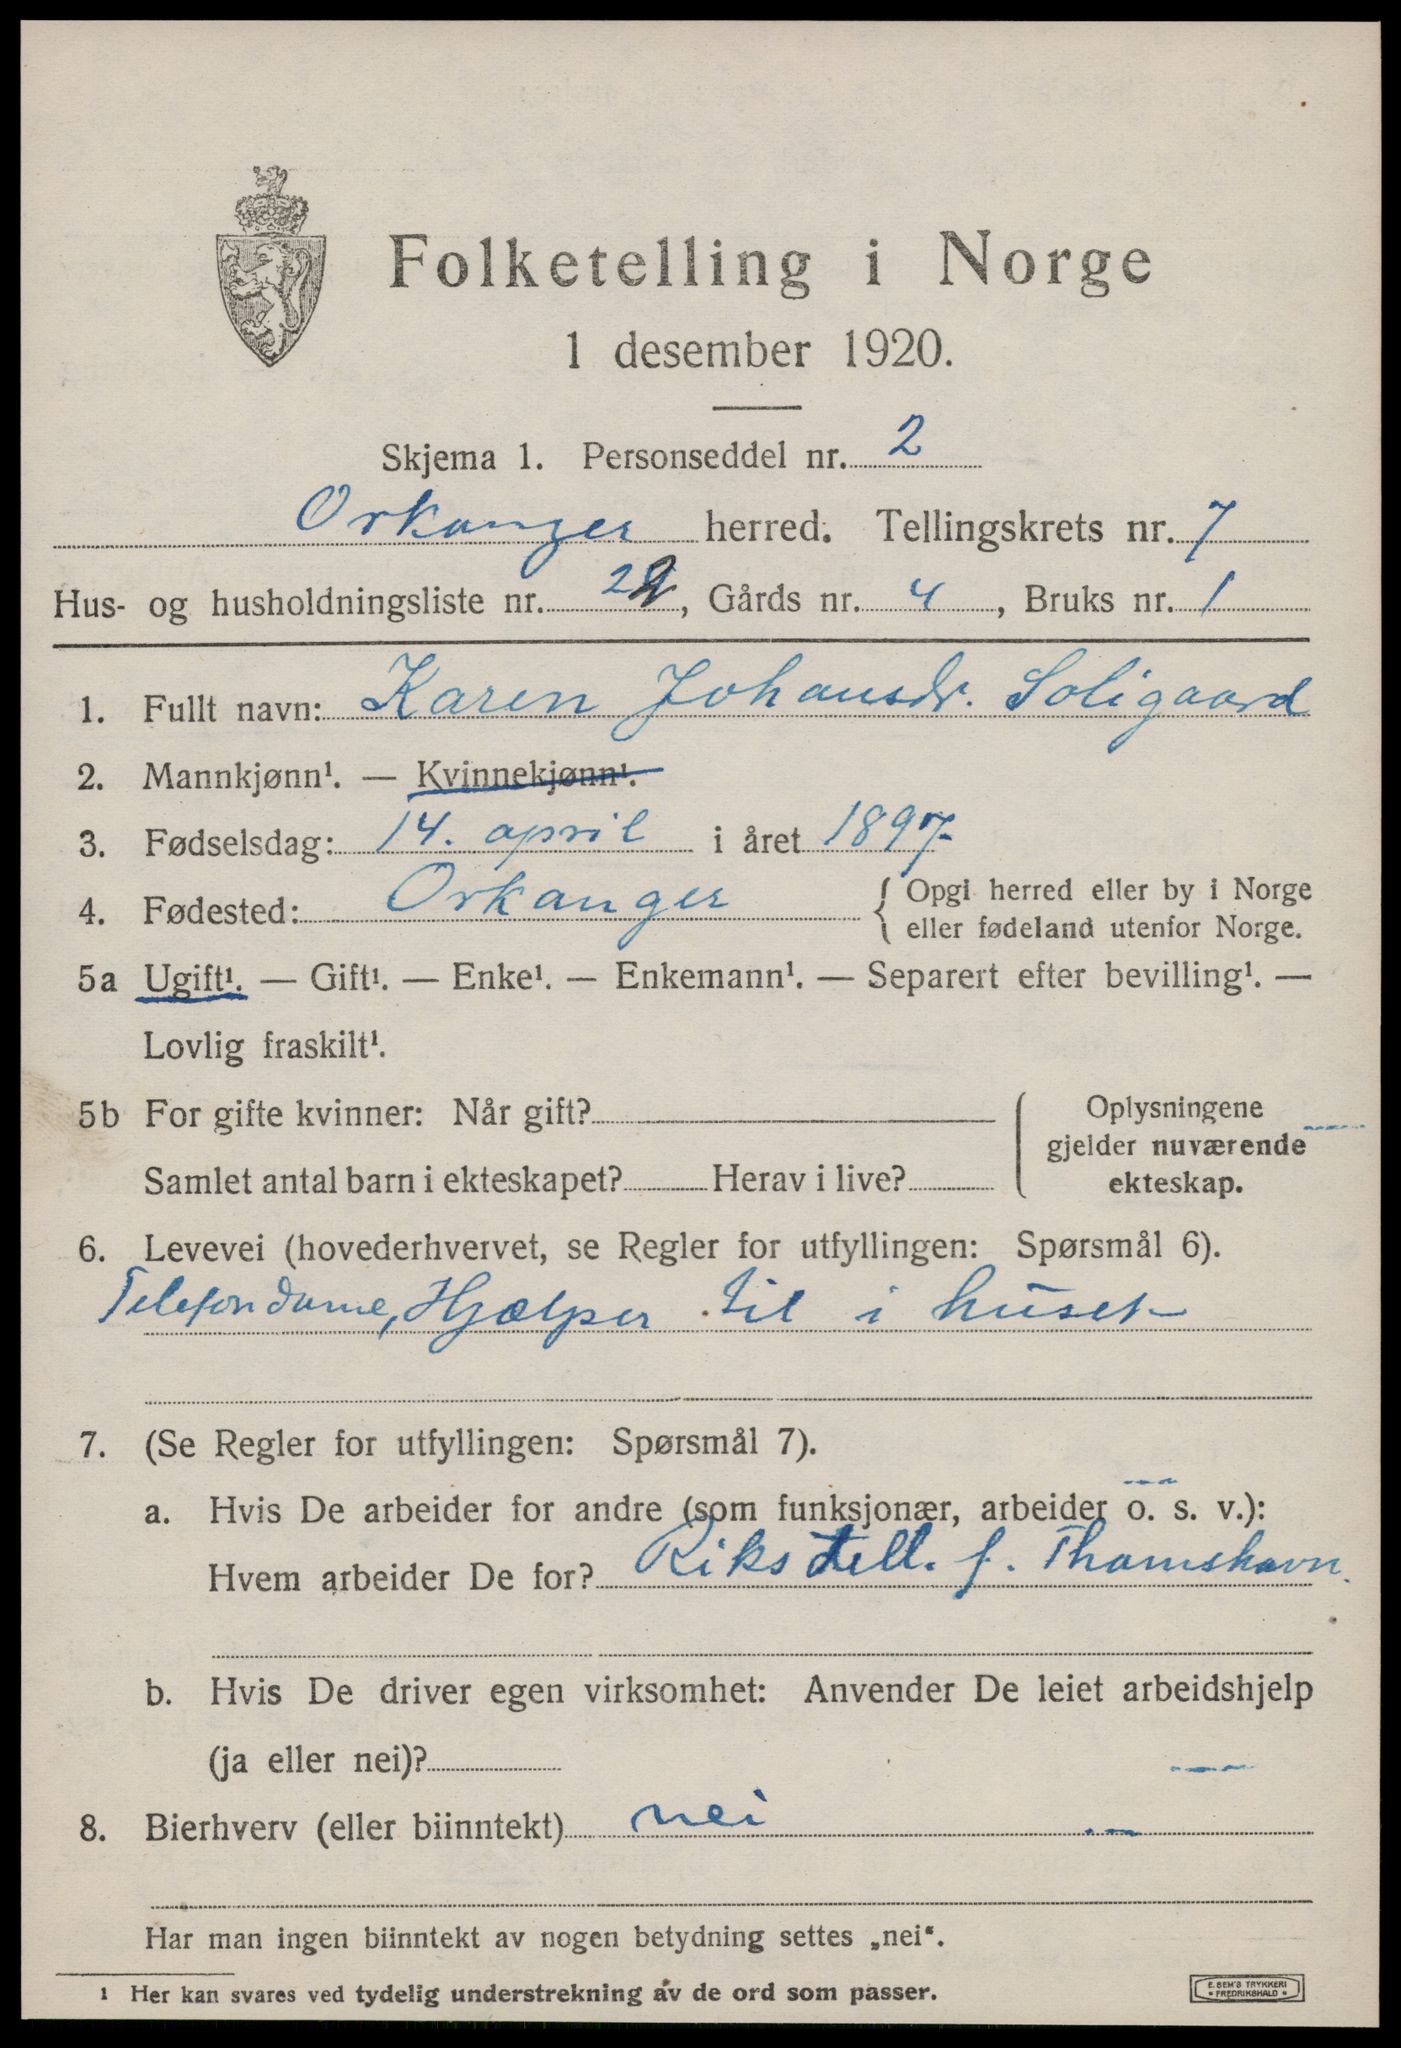 Folketelling i Norge
1 desember 1920.
Skjema 1. Personseddel nr. 2
Orkanger herred. Tellingskrets nr. 7
Hus- og husholdningsliste nr. 22, Gårds nr. 4, Bruks nr. 1
1. Fullt navn: Karen Johansdr. Soligaard
2. Mannkjønn¹. — Kvinnekjønn¹.
3. Fødselsdag: 14. april i året 1897
4. Fødested: Orkanger { Opgi herred eller by i Norge
eller fødeland utenfor Norge.
5a Ugift¹. — Gift¹. — Enke¹. — Enkemann¹. — Separert efter bevilling¹. —
Lovlig fraskilt¹.
5b For gifte kvinner: Når gift?
Samlet antal barn i ekteskapet? Herav i live?
Oplysningene
gjelder nuværende
ekteskap.
6. Levevei (hovederhvervet, se Regler for utfyllingen: Spørsmål 6).
Telefondame, Hjælper til i huset
7. (Se Regler for utfyllingen: Spørsmål 7).
a. Hvis De arbeider for andre (som funksjonær, arbeider o. s. v.):
Hvem arbeider De for? Rikstell. f. Thamshavn.
b. Hvis De driver egen virksomhet: Anvender De leiet arbeidshjelp
(ja eller nei)?
8. Bierhverv (eller biinntekt) nei
Har man ingen biinntekt av nogen betydning settes „nei“.
1 Her kan svares ved tydelig understrekning av de ord som passer.
E. SEM'S TRYKKERI
• FREDRIKSHALD •